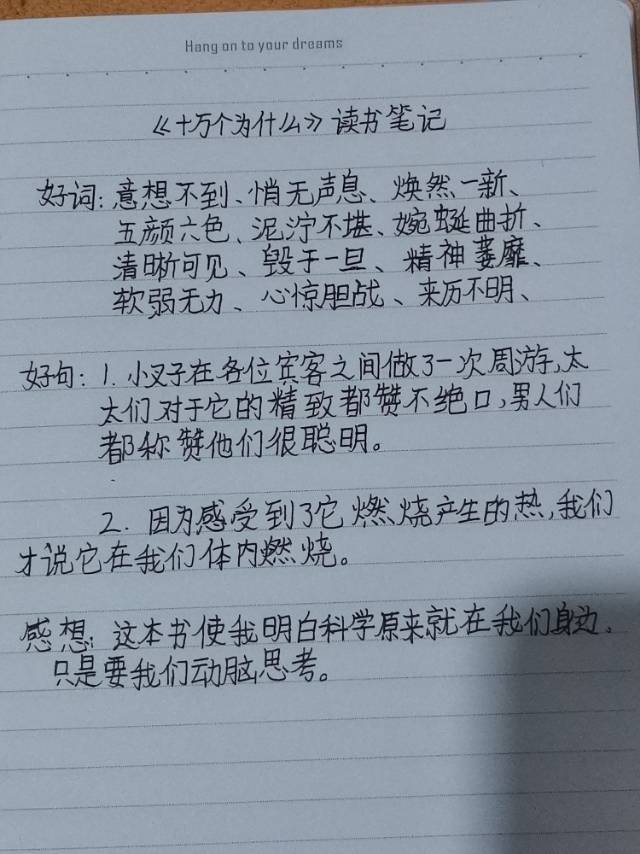 Hang on to your dreams
《十万个为什么》读书笔记
好词：意想不到、悄无声息、焕然一新、
五颜六色、泥泞不堪、蜿蜒曲折、
清晰可见、毁于一旦、精神萎靡、
软弱无力、心惊胆战、来历不明、
好句：1. 小叉子在各位宾客之间做了一次周游，太
太们对于它的精致都赞不绝口，男人们
都称赞他们很聪明。
2. 因为感受到了它燃烧产生的热，我们
才说它在我们体内燃烧。
感想：这本书使我明白科学原来就在我们身边。
只是要我们动脑思考。